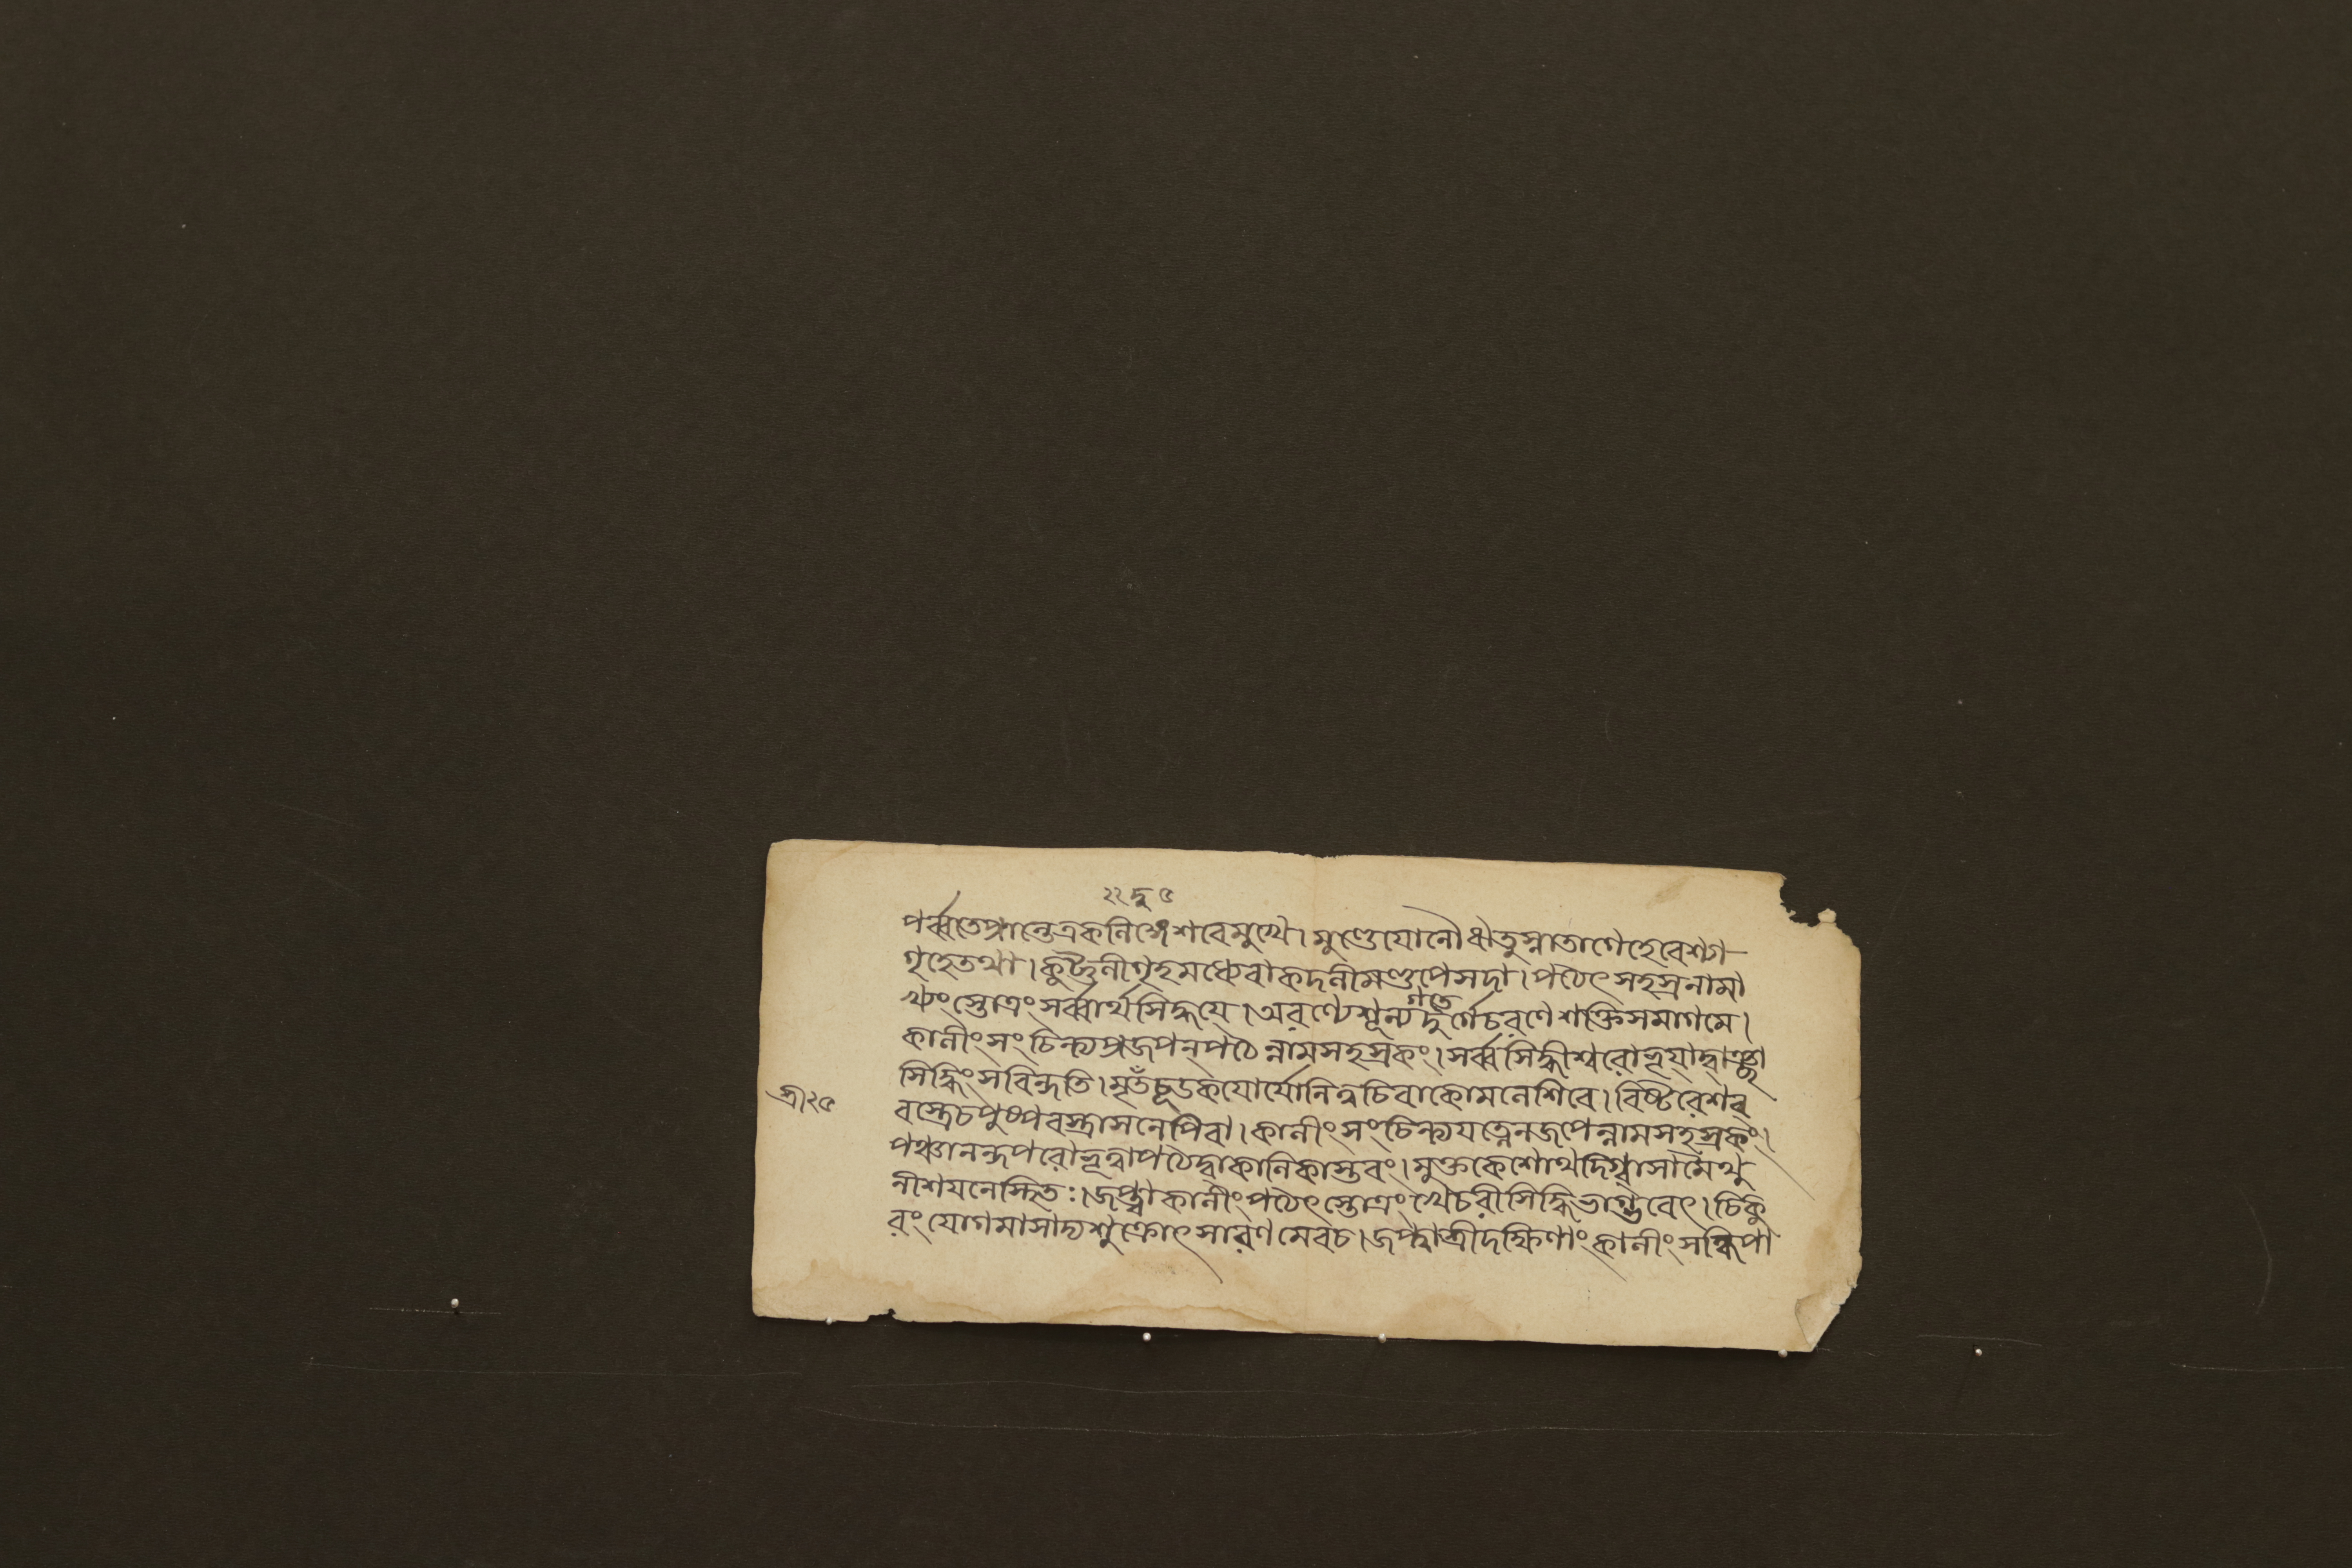 ২২ দু ৫
পর্ব্বতপ্রান্তেএকলিঙ্গেশবেমুখে। মুণ্ডেযোনৌঋতুস্নাতাগেহেবেশ্যা
গৃহেতথা। কুট্টনীগৃহমধ্যেবাকদলীমণ্ডপেসদা। পঠেৎসহস্রনামা
খ্যংস্তোত্রংসর্ব্বার্থসিদ্ধয়ে। অরণ্যেশূন্যগর্ত্তেদুর্গেচরণেশক্তিসমাগমে।
কালীংসংচিন্ত্যপ্রজপন্পঠেন্নামসহস্রকং। সর্ব্বসিদ্ধীশ্বরোভূয়াদ্বাঞ্ছা
সিদ্ধিংসবিন্দতি। মৃতচূডকযোর্যোনিত্বচিবাকোমলেশিবে। বিষ্টরেশব
শ্রী ২৫
বস্ত্রেচপুষ্পবস্ত্রাসনেপিবা। কালীংসংচিন্ত্যযত্নেনজপেন্নামসহস্রকং।
পঞ্চানন্দপরোভূত্বাপঠেদ্বাকালিকাস্তবং। মুক্তকেশোথদিগ্বাসামৈথু
নীশয়নেস্থিতঃ। জপ্ত্বাকালীংপঠেৎস্তোত্রংখেচরীসিদ্ধিভাগ্ভবেৎ। চিকু
রংযোগমাসাদ্যশুক্রোৎসারণমেবচ। জপ্ত্বাশ্রীদক্ষিণাংকালীংসন্ধিপা